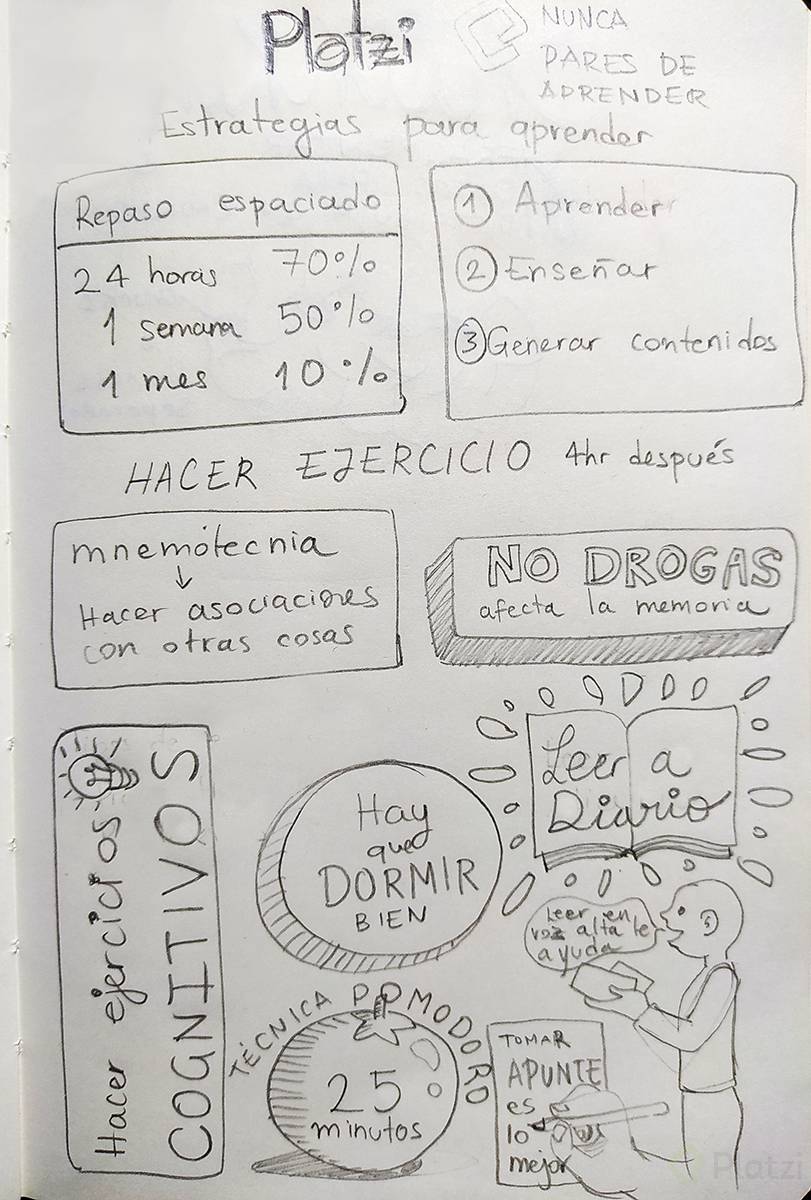 Platzi
NUNCA
PARES DE
APRENDER
Estrategias para aprender
Repaso espaciado
24 horas 70%
1 semana 50%
1 mes 10%
1 Aprender
2 Enseñar
3 Generar contenidos
HACER EJERCICIO 4hr después
mnemótecnia
↓
Hacer asociaciones
con otras cosas
NO DROGAS
afecta la memoria
Hacer ejercicios
COGNITIVOS
Hay
que
DORMIR
BIEN
Leer a
Diario
Leer en
voz alta te
ayuda
TÉCNICA POMODORO
25
minutos
TOMAR
APUNTE
es
lo
mejor
Platzi